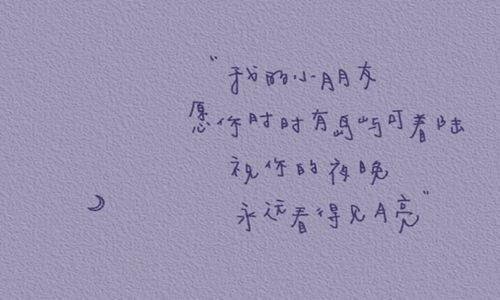 “我的小朋友
愿你时时有岛屿可着陆
祝你的夜晚
永远看得见月亮”